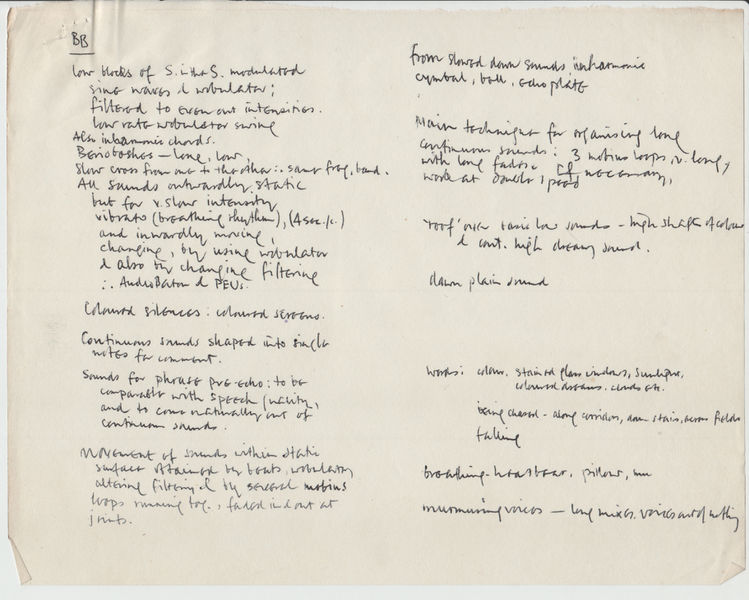 BB
low blocks of S. in the S. modulated
sine waves & wobulator;
filtered to even out intensities.
low rate wobulator swing
Also inharmonic chords.
long, low,
slow cross from one to the other ∴ same freq. band.
All sounds outwardly static
but for v. slow intensity
vibrato (breathing rhythm), (4 sec./c.)
and inwardly moving,
changing, by using wobulator
& also by changing filtering
∴ & PEUs.
Coloured silences: coloured screens.
Continuous sounds shaped into single
notes for comment.
Sounds for phrase pre-echo: to be
comparable with speech quality,
and to come naturally out of
continuous sounds.
Movement of sounds within static
surface obtained by beats, wobulator,
altering filtering & by several mobius
loops running tog., faded in & out at
joints.
from slowed down sounds inharmonic
cymbal, bell, echo plate
Main technique for organising long
continuous sounds: 3 mobius loops, v. long,
with long fades. If necessary,
work at double speed
'roof' over basic low sounds – high shafts of colour
& cont. high dreamy sound.
dawn plain sound
Words: colour. stained glass windows, sunlight,
coloured dreams. clouds etc.
being chased – along corridors, down stairs, across fields
falling
breathing – heartbeat. pillow,
murmuring voices — long mixes. voices out of nothing